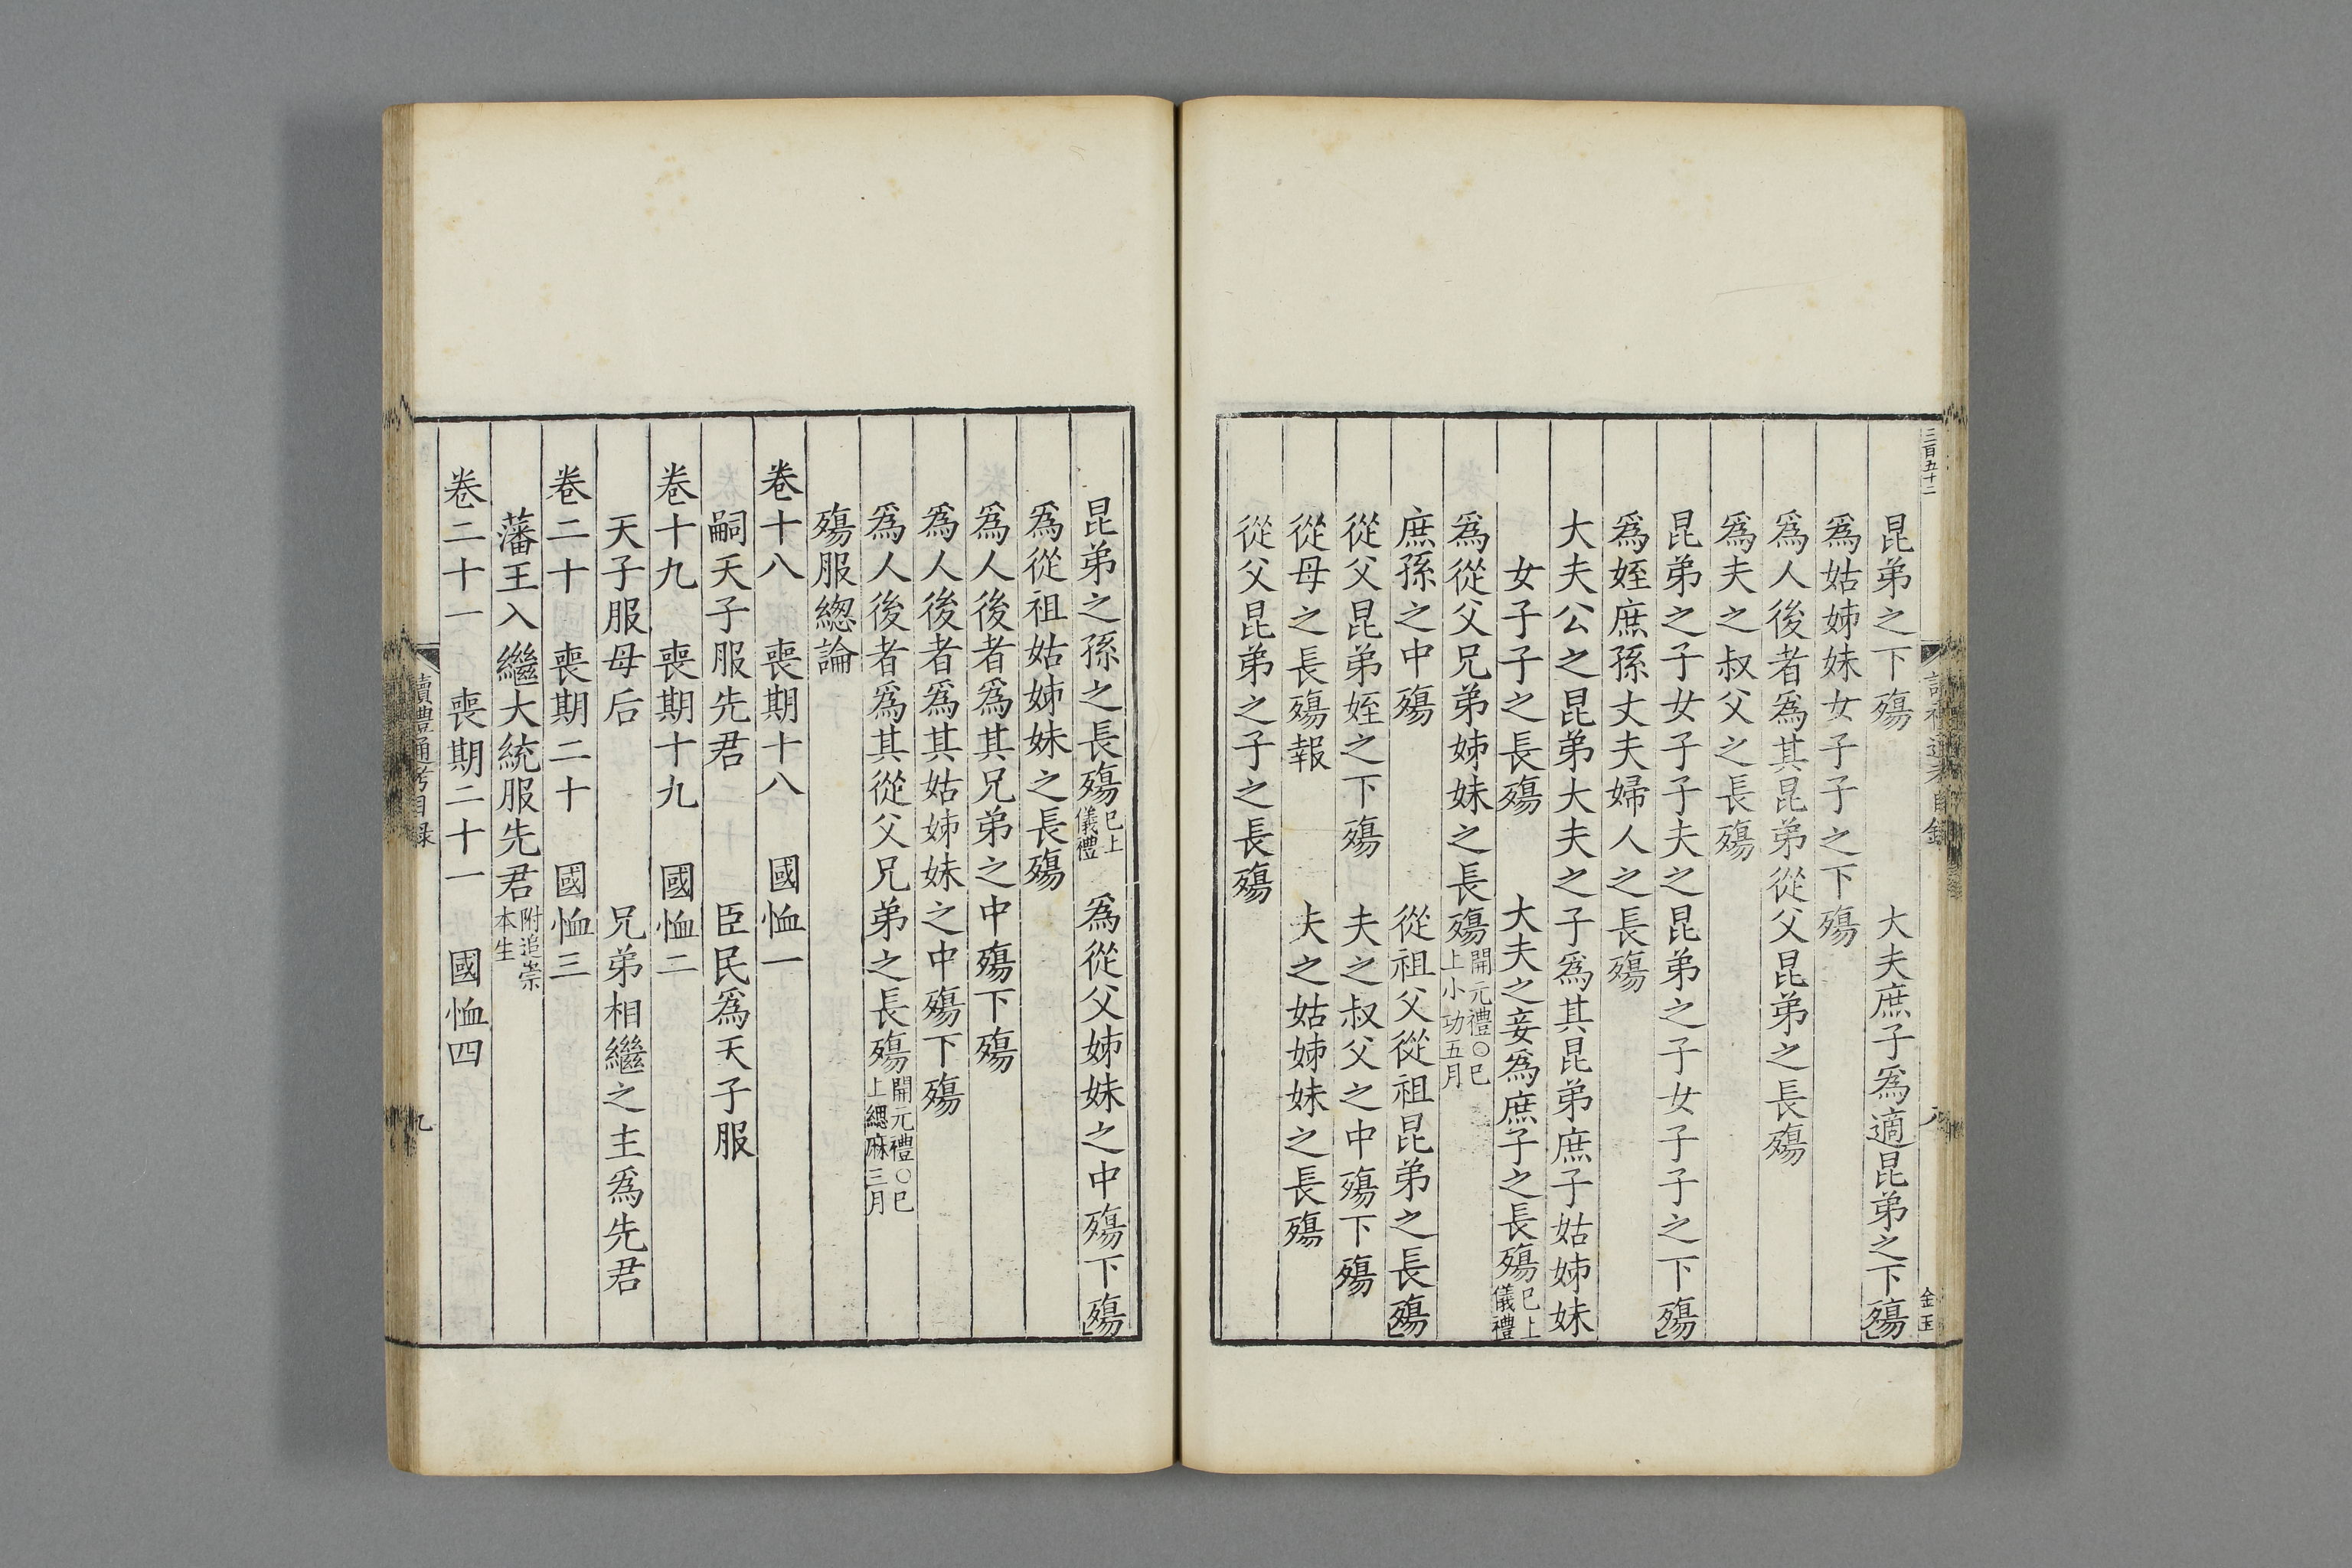 三百五十二
讀禮通考目錄
八
金玉
昆弟之下殤 大夫庶子爲適昆弟之下殤
爲姑姊妹女子子之下殤
爲人後者爲其昆弟從父昆弟之長殤
爲夫之叔父之長殤
昆弟之子女子子夫之昆弟之子女子子之下殤
爲姪庶孫丈夫婦人之長殤
大夫公之昆弟大夫之子爲其昆弟庶子姑姊妹
女子子之長殤 大夫之妾爲庶子之長殤已上儀禮
爲從父兄弟姊妹之長殤開元禮○已上小功五月
庶孫之中殤 從祖父從祖昆弟之長殤
從父昆弟姪之下殤 夫之叔父之中殤下殤
從母之長殤報 夫之姑姊妹之長殤
從父昆弟之子之長殤
昆弟之孫之長殤已上儀禮 爲從父姊妹之中殤下殤
爲從祖姑姊妹之長殤
爲人後者爲其兄弟之中殤下殤
爲人後者爲其姑姊妹之中殤下殤
爲人後者爲其從父兄弟之長殤開元禮○已上緦麻三月
殤服總論
卷十八 喪期十八 國恤一
嗣天子服先君 臣民爲天子服
卷十九 喪期十九 國恤二
天子服母后 兄弟相繼之主爲先君
卷二十 喪期二十 國恤三
藩王入繼大統服先君附追崇本生
卷二十一 喪期二十一 國恤四
讀禮通考目録
九